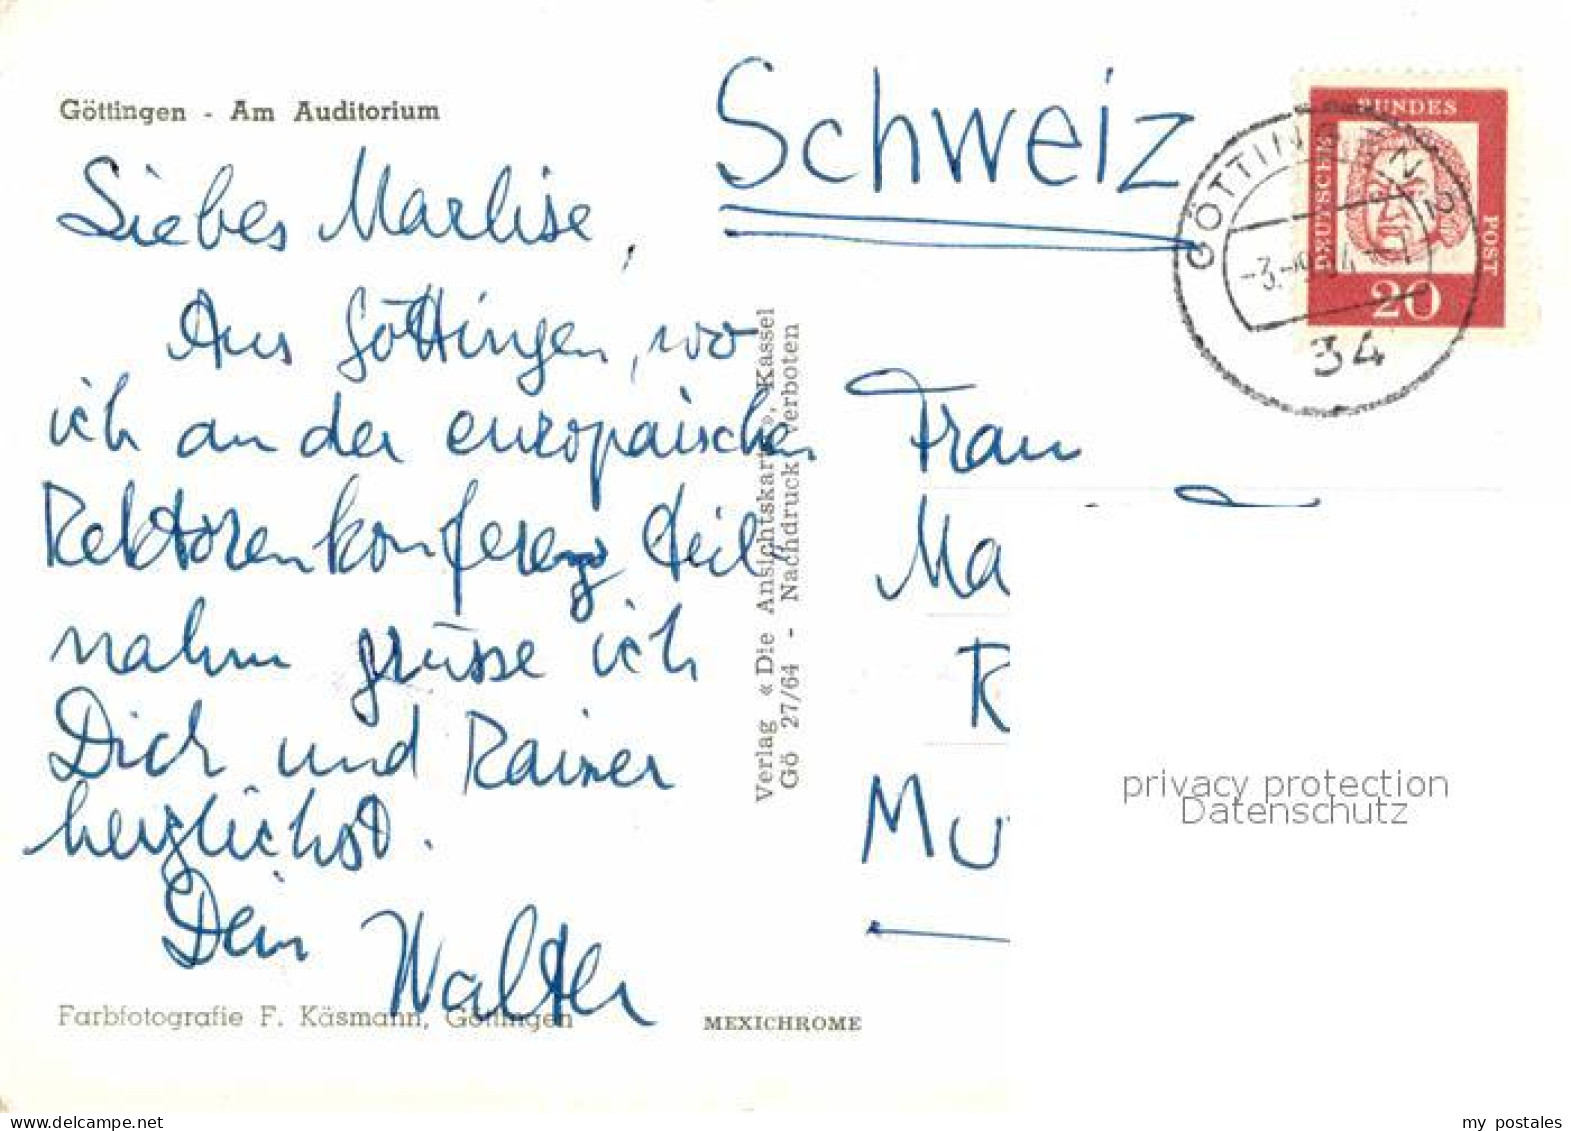 Göttingen - Am Auditorium
Schweiz
Liebes Marlise,
Aus Göttingen, wo
ich an der europäischen
Rektorenkonferenz teil-
nahm grüsse ich
Dich und Rainer
herzlichst.
Dein Walter
Farbfotografie F. Käsmann, Göttingen
MEXICHROME
Verlag « Die Ansichtskarte », Kassel
Gö 27/64 - Nachdruck verboten
DEUTSCHE BUNDES POST
20
GÖTTINGEN 2
34
Frau
Ma
R
Mu
privacy protection
Datenschutz
my postales